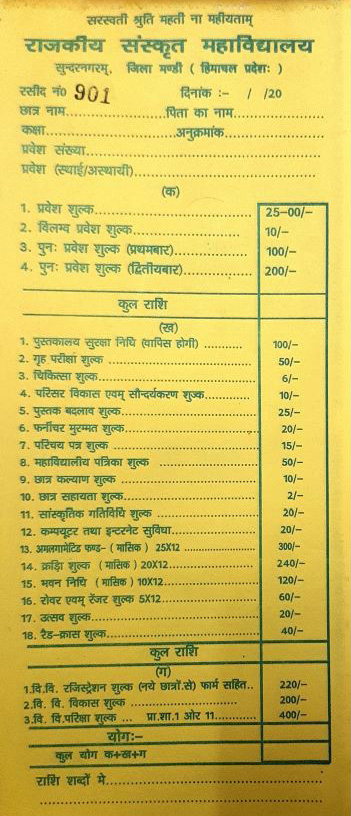 सरस्वती श्रुति महती ना महीयताम्
राजकीय संस्कृत महाविद्यालय
सुन्दरनगरम्, जिला मण्डी ( हिमाचल प्रदेशः )
रसीद नं० 901 दिनांक :- / /20
छात्र नाम....................पिता का नाम....................
कक्षा....................अनुक्रमांक....................
प्रवेश संख्या....................
प्रवेश (स्थाई/अस्थायी)....................
(क)
1. प्रवेश शुल्क.................... 25-00/-
2. विलम्ब प्रवेश शुल्क.................... 10/-
3. पुनः प्रवेश शुल्क (प्रथमबार).................... 100/-
4. पुनः प्रवेश शुल्क (द्वितीयबार).................... 200/-
कुल राशि
(ख)
1. पुस्तकालय सुरक्षा निधि (वापिस होगी) ............ 100/-
2. गृह परीक्षा शुल्क .................... 50/-
3. चिकित्सा शुल्क.................... 6/-
4. परिसर विकास एवम् सौन्दर्यकरण शुज्क............ 10/-
5. पुस्तक बदलाव शुल्क.................... 25/-
6. फर्नीचर मुरम्मत शुल्क.................... 20/-
7. परिचय पत्र शुल्क.................... 15/-
8. महाविद्यालीय पत्रिका शुल्क .................... 50/-
9. छात्र कल्याण शुल्क.................... 10/-
10. छात्र सहायता शुल्क.................... 2/-
11. सांस्कृतिक गतिविधि शुल्क.................... 20/-
12. कम्प्यूटर तथा इन्टरनेट सुविधा.................... 20/-
13. अमलगामेटिड फण्ड- ( मासिक ) 25X12 .................... 300/-
14. क्रड़िा शुल्क ( मासिक ) 20X12.................... 240/-
15. भवन निधि ( मासिक ) 10X12.................... 120/-
16. रोवर एवम् रेंजर शुल्क 5X12.................... 60/-
17. उत्सव शुल्क.................... 20/-
18. रैड-क्रास शुल्क.................... 40/-
कुल राशि
(ग)
1.वि.वि. रजिस्ट्रेशन शुल्क (नये छात्रों.से) फार्म सहित.. 220/-
2.वि. वि. विकास शुल्क .................... 200/-
3.वि. वि.परिक्षा शुल्क ... प्रा.शा.1 ओर 11............ 400/-
योगः-
कुल योग क+ख+ग
राशि शब्दों मे....................